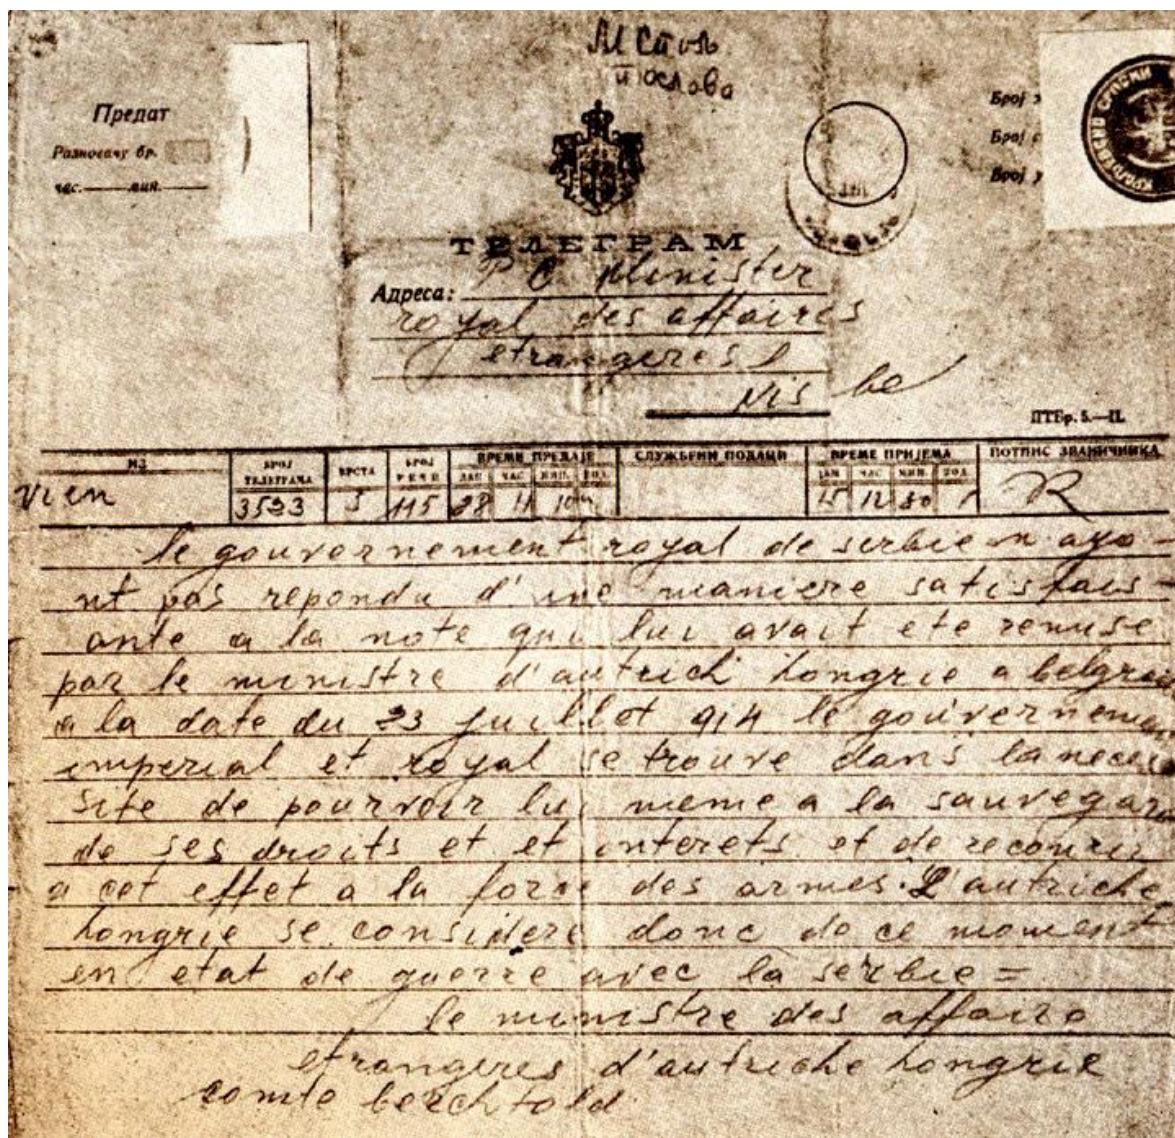 М Ст уль
послова
Предат
Разносачу бр.
час.——мин.——
Број
Број
Број
КРАЉЕВСКО СРПСКИ
ТЕЛЕГРАМ
Адреса: P C Minister
royal des affaires
etrangeres
Nis be
ПТБр. 5.—II.
ИЗ БРОЈ ТЕЛЕГРАМА ВРСТА БРОЈ РЕЧИ ВРЕМЕ ПРЕДАЈЕ СЛУЖБЕНИ ПОДАЦИ ВРЕМЕ ПРИЈЕМА ПОТПИС ЗВАНИЧНИКА
ДАН ЧАС МИН. ПОД ДАН ЧАС МИН. ПОД
vien 3523 5 115 28 11 10 15 12 30 R
le gouvernement royal de serbie n aya-
nt pas repondu d'une maniere satisfais-
ante a la note qui lui avait ete remise
par le ministre d'autrich hongrie a belgra
a la date du 23 juillet 914 le gouverneme
imperial et royal se trouve dans la neces
site de pourvoir lui meme a la sauvegar
de ses droits et et interets et de recourir
a cet effet a la force des armes. L'autriche
hongrie se considere donc de ce moment
en etat de guerre avec la serbie =
le ministre des affaire
etrangeres d'autriche hongrie
comte berchtold